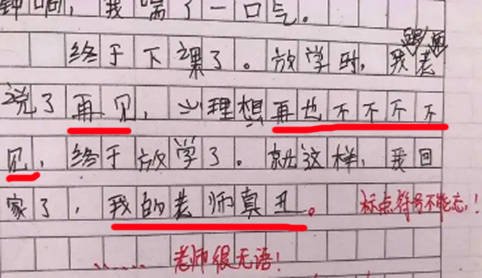 钟啊，我喘了一口气。
终于下课了。放学时，我跟老
说了再见，心理想再也不不不不
见，终于放学了。就这样，我回
家了，我的老师真丑。标点符号不能忘！
……老师很无语！